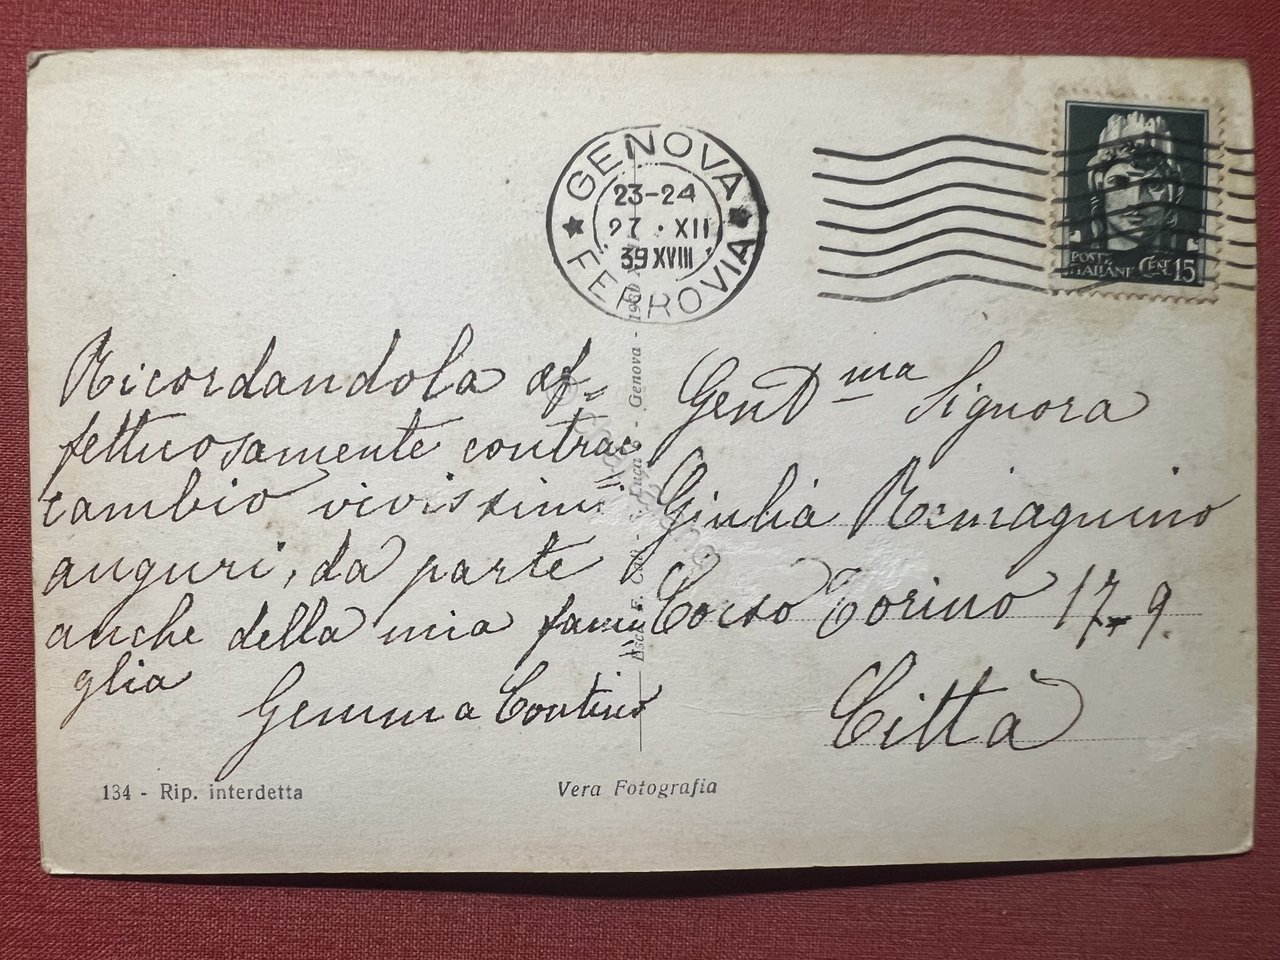 GENOVA
23-24
27 · XII
39 XVIII
FERROVIA
POSTE
ITALIANE
CENT. 15
Ricordandola af=
fettuosamente contrac
cambio vivissimi
auguri, da parte
anche della mia fami
glia
Gemma Contino
Gent.ma Signora
Giulia Remagnino
Corso Torino 17-9
Città
Genova - 1930
134 - Rip. interdetta
Vera Fotografia